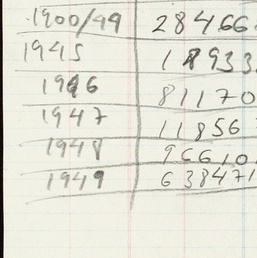 1900/44 28466
1945 18933
1946 81170
1947 11856
1948 96610
1949 638471